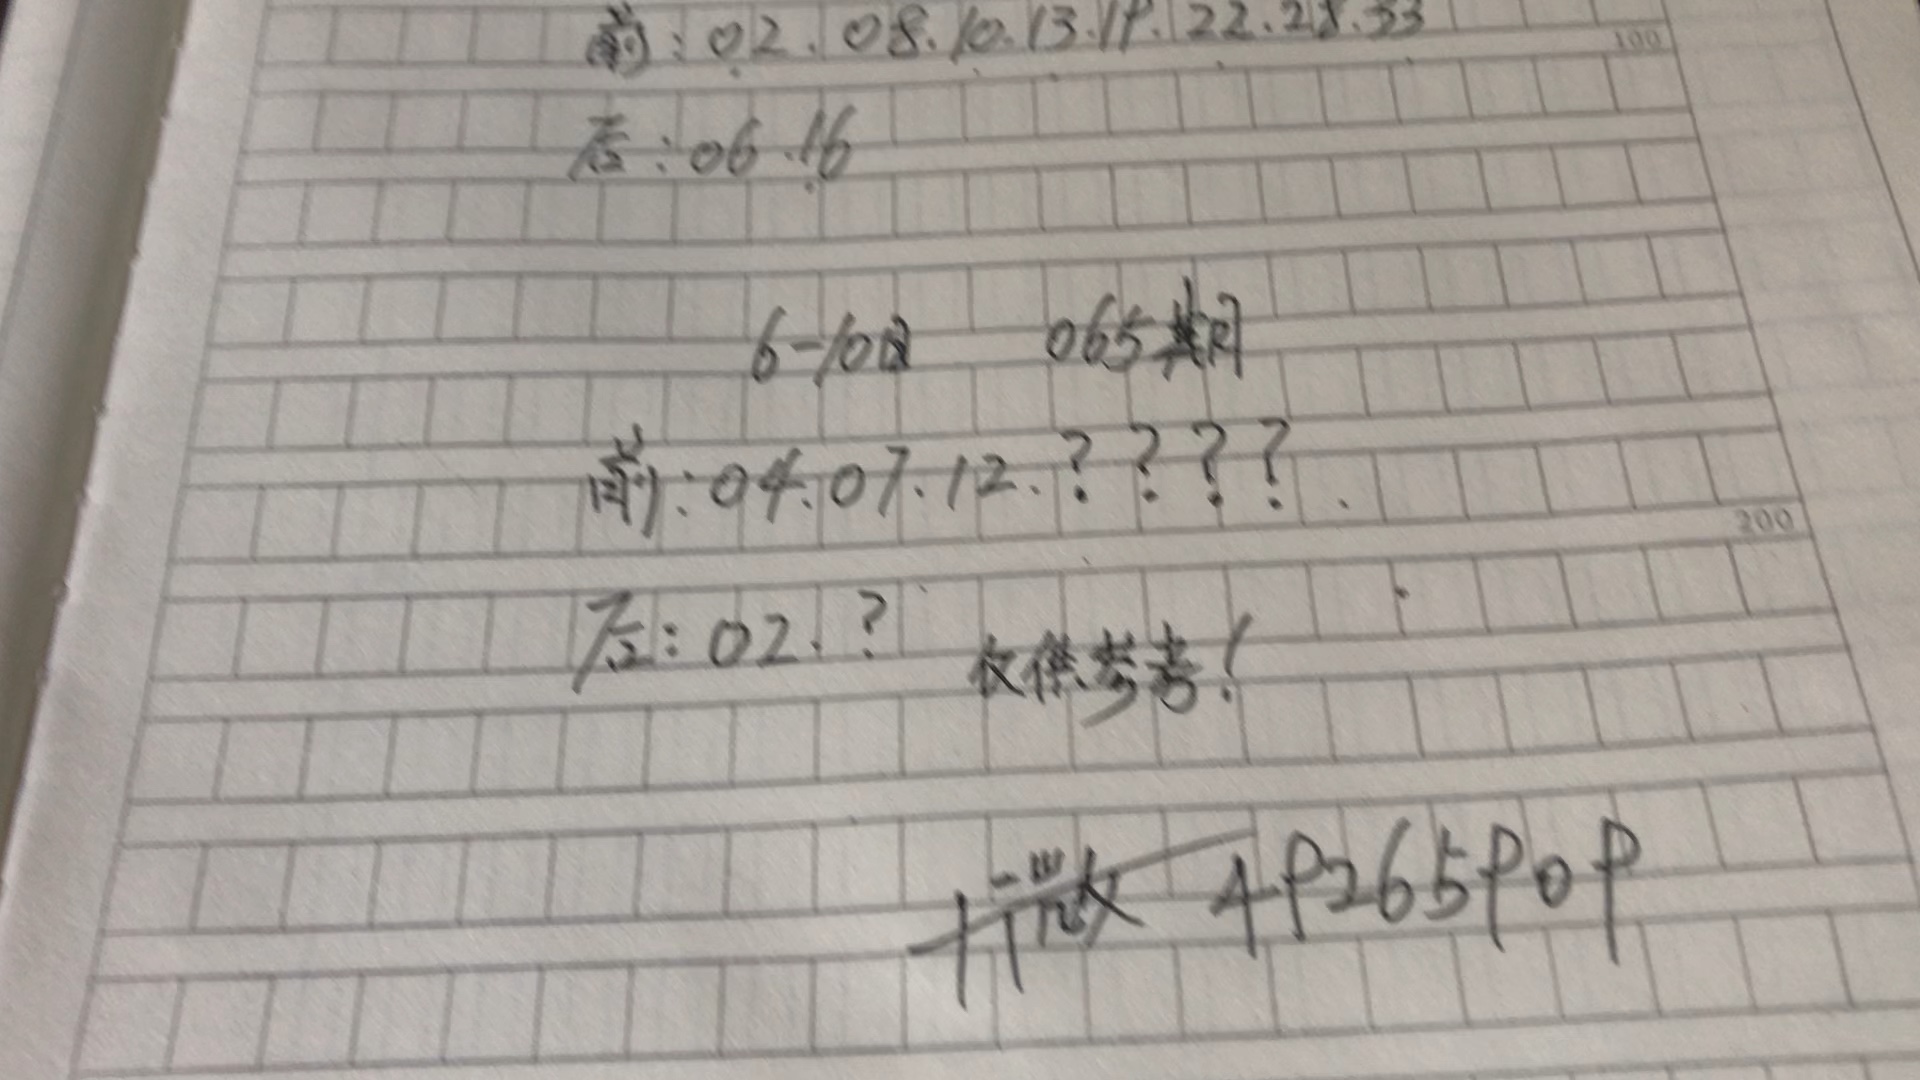 前:02.08.10.13.19.22.28.33
100
后:06.16
6-10日 065期
前:04.07.12.????.
200
后:02.?
仅供参考!
49265909